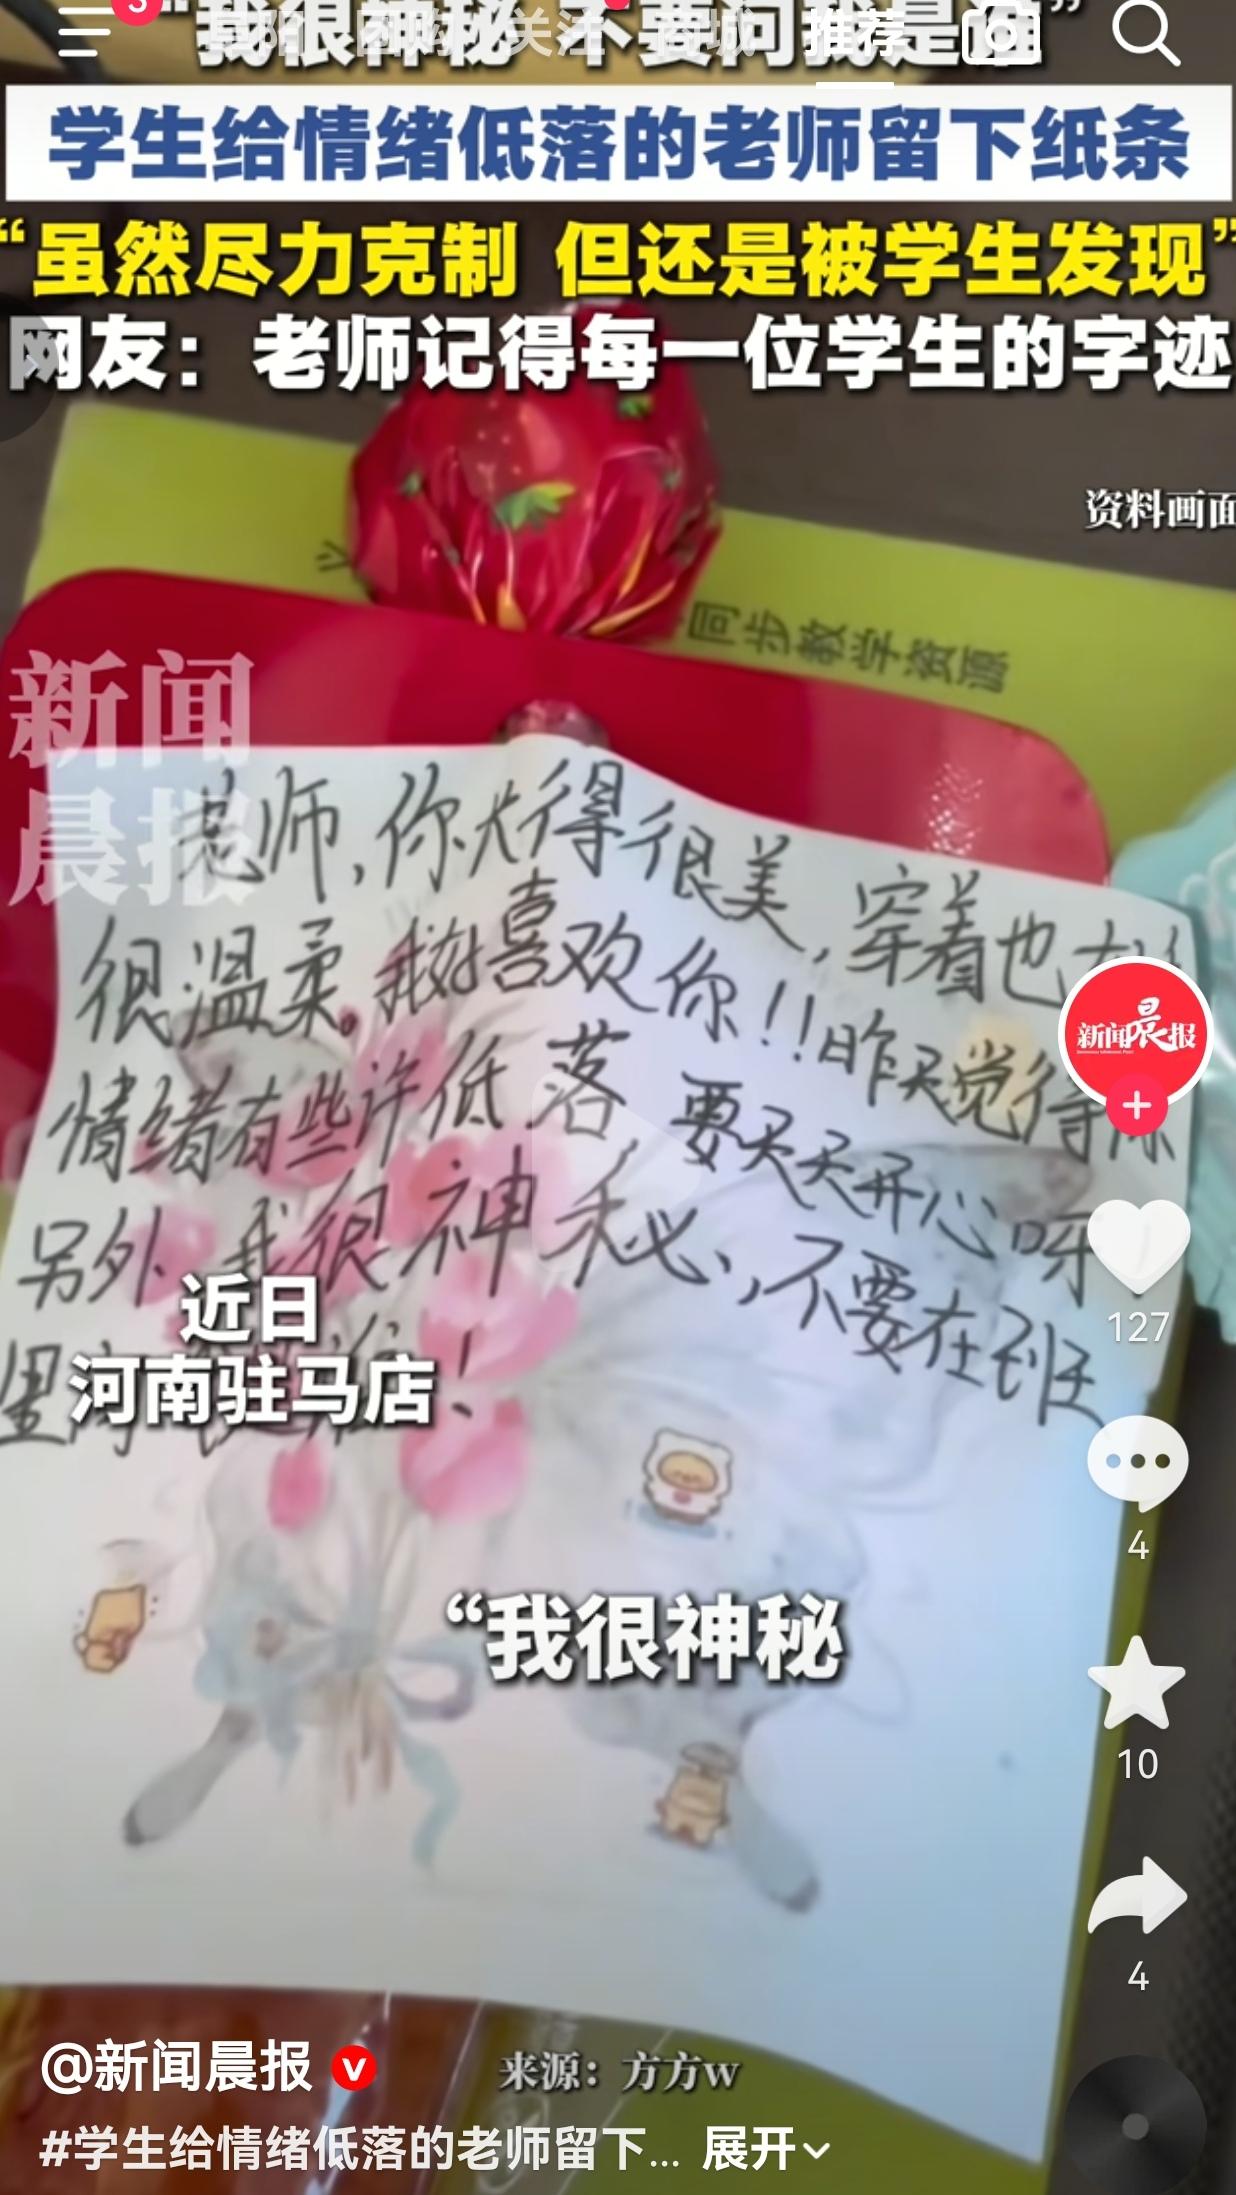 3
“我很神秘 不要问我是谁”
团购 关注 商城 推荐
学生给情绪低落的老师留下纸条
“虽然尽力克制 但还是被学生发现”
网友：老师记得每一位学生的字迹
资料画面
同步教学资源
新闻
晨报
老师,你长得很美,穿着也
很温柔。我好喜欢你!!昨天觉得你
情绪有些许低落,要天天开心呀
另外,我很神秘,不要在班
里
!
新闻晨报
近日
河南驻马店
127
4
“我很神秘
10
4
@新闻晨报
来源：方方w
#学生给情绪低落的老师留下... 展开